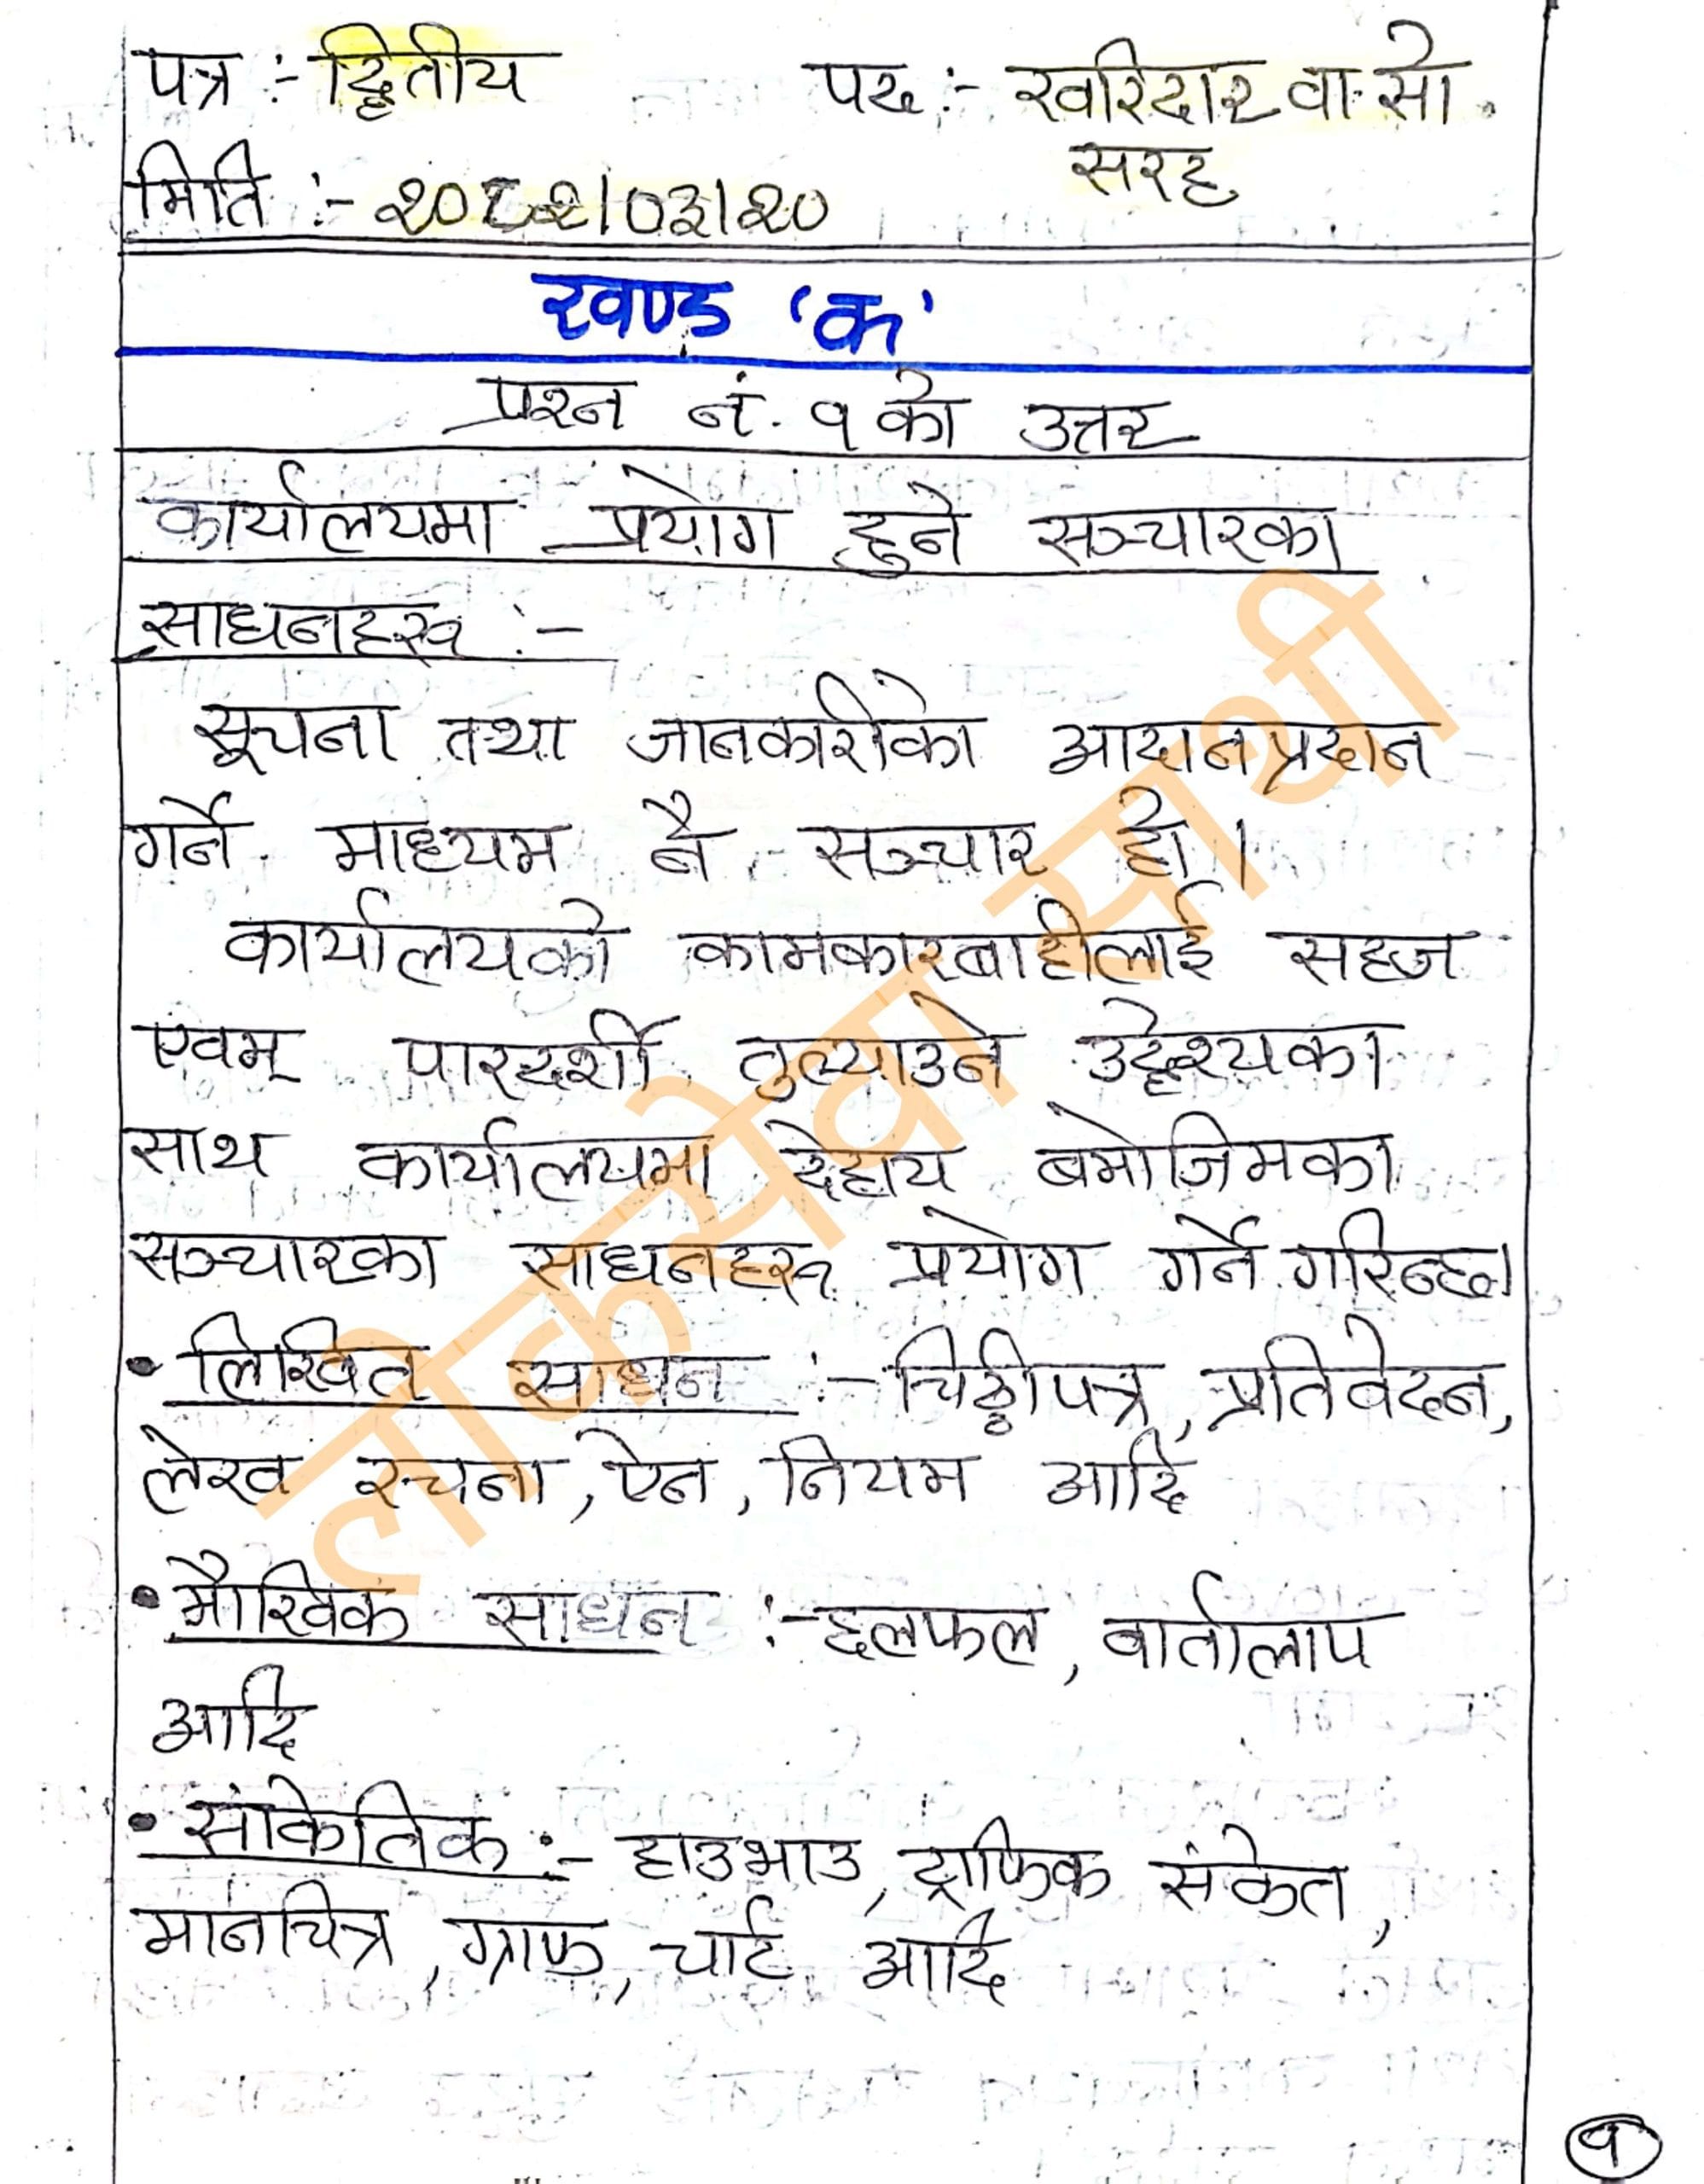 पत्र :- द्वितीय पद :- खरिदार वा सो सरह
मिति :- २०८२/०३/२०
खण्ड 'क'
प्रश्न नं. १ को उत्तर
कार्यालयमा प्रयोग हुने सञ्चारका
साधनहरू :-
सूचना तथा जानकारीको आदानप्रदान
गर्ने माध्यम नै सञ्चार हो।
कार्यालयको कामकारबाहीलाई सहज
एवम् पारदर्शी तुल्याउने उद्देश्यका
साथ कार्यालयमा देहाय बमोजिमका
सञ्चारका साधनहरू प्रयोग गर्ने गरिन्छ।
• लिखित साधन :- चिठ्ठीपत्र, प्रतिवेदन,
लेख रचना, ऐन, नियम आदि
• मौखिक साधन :- छलफल, वार्तालाप
आदि
• सांकेतिक :- हाउभाउ, ट्राफिक संकेत,
मानचित्र, ग्राफ, चार्ट आदि
लोकसेवा साथी
१